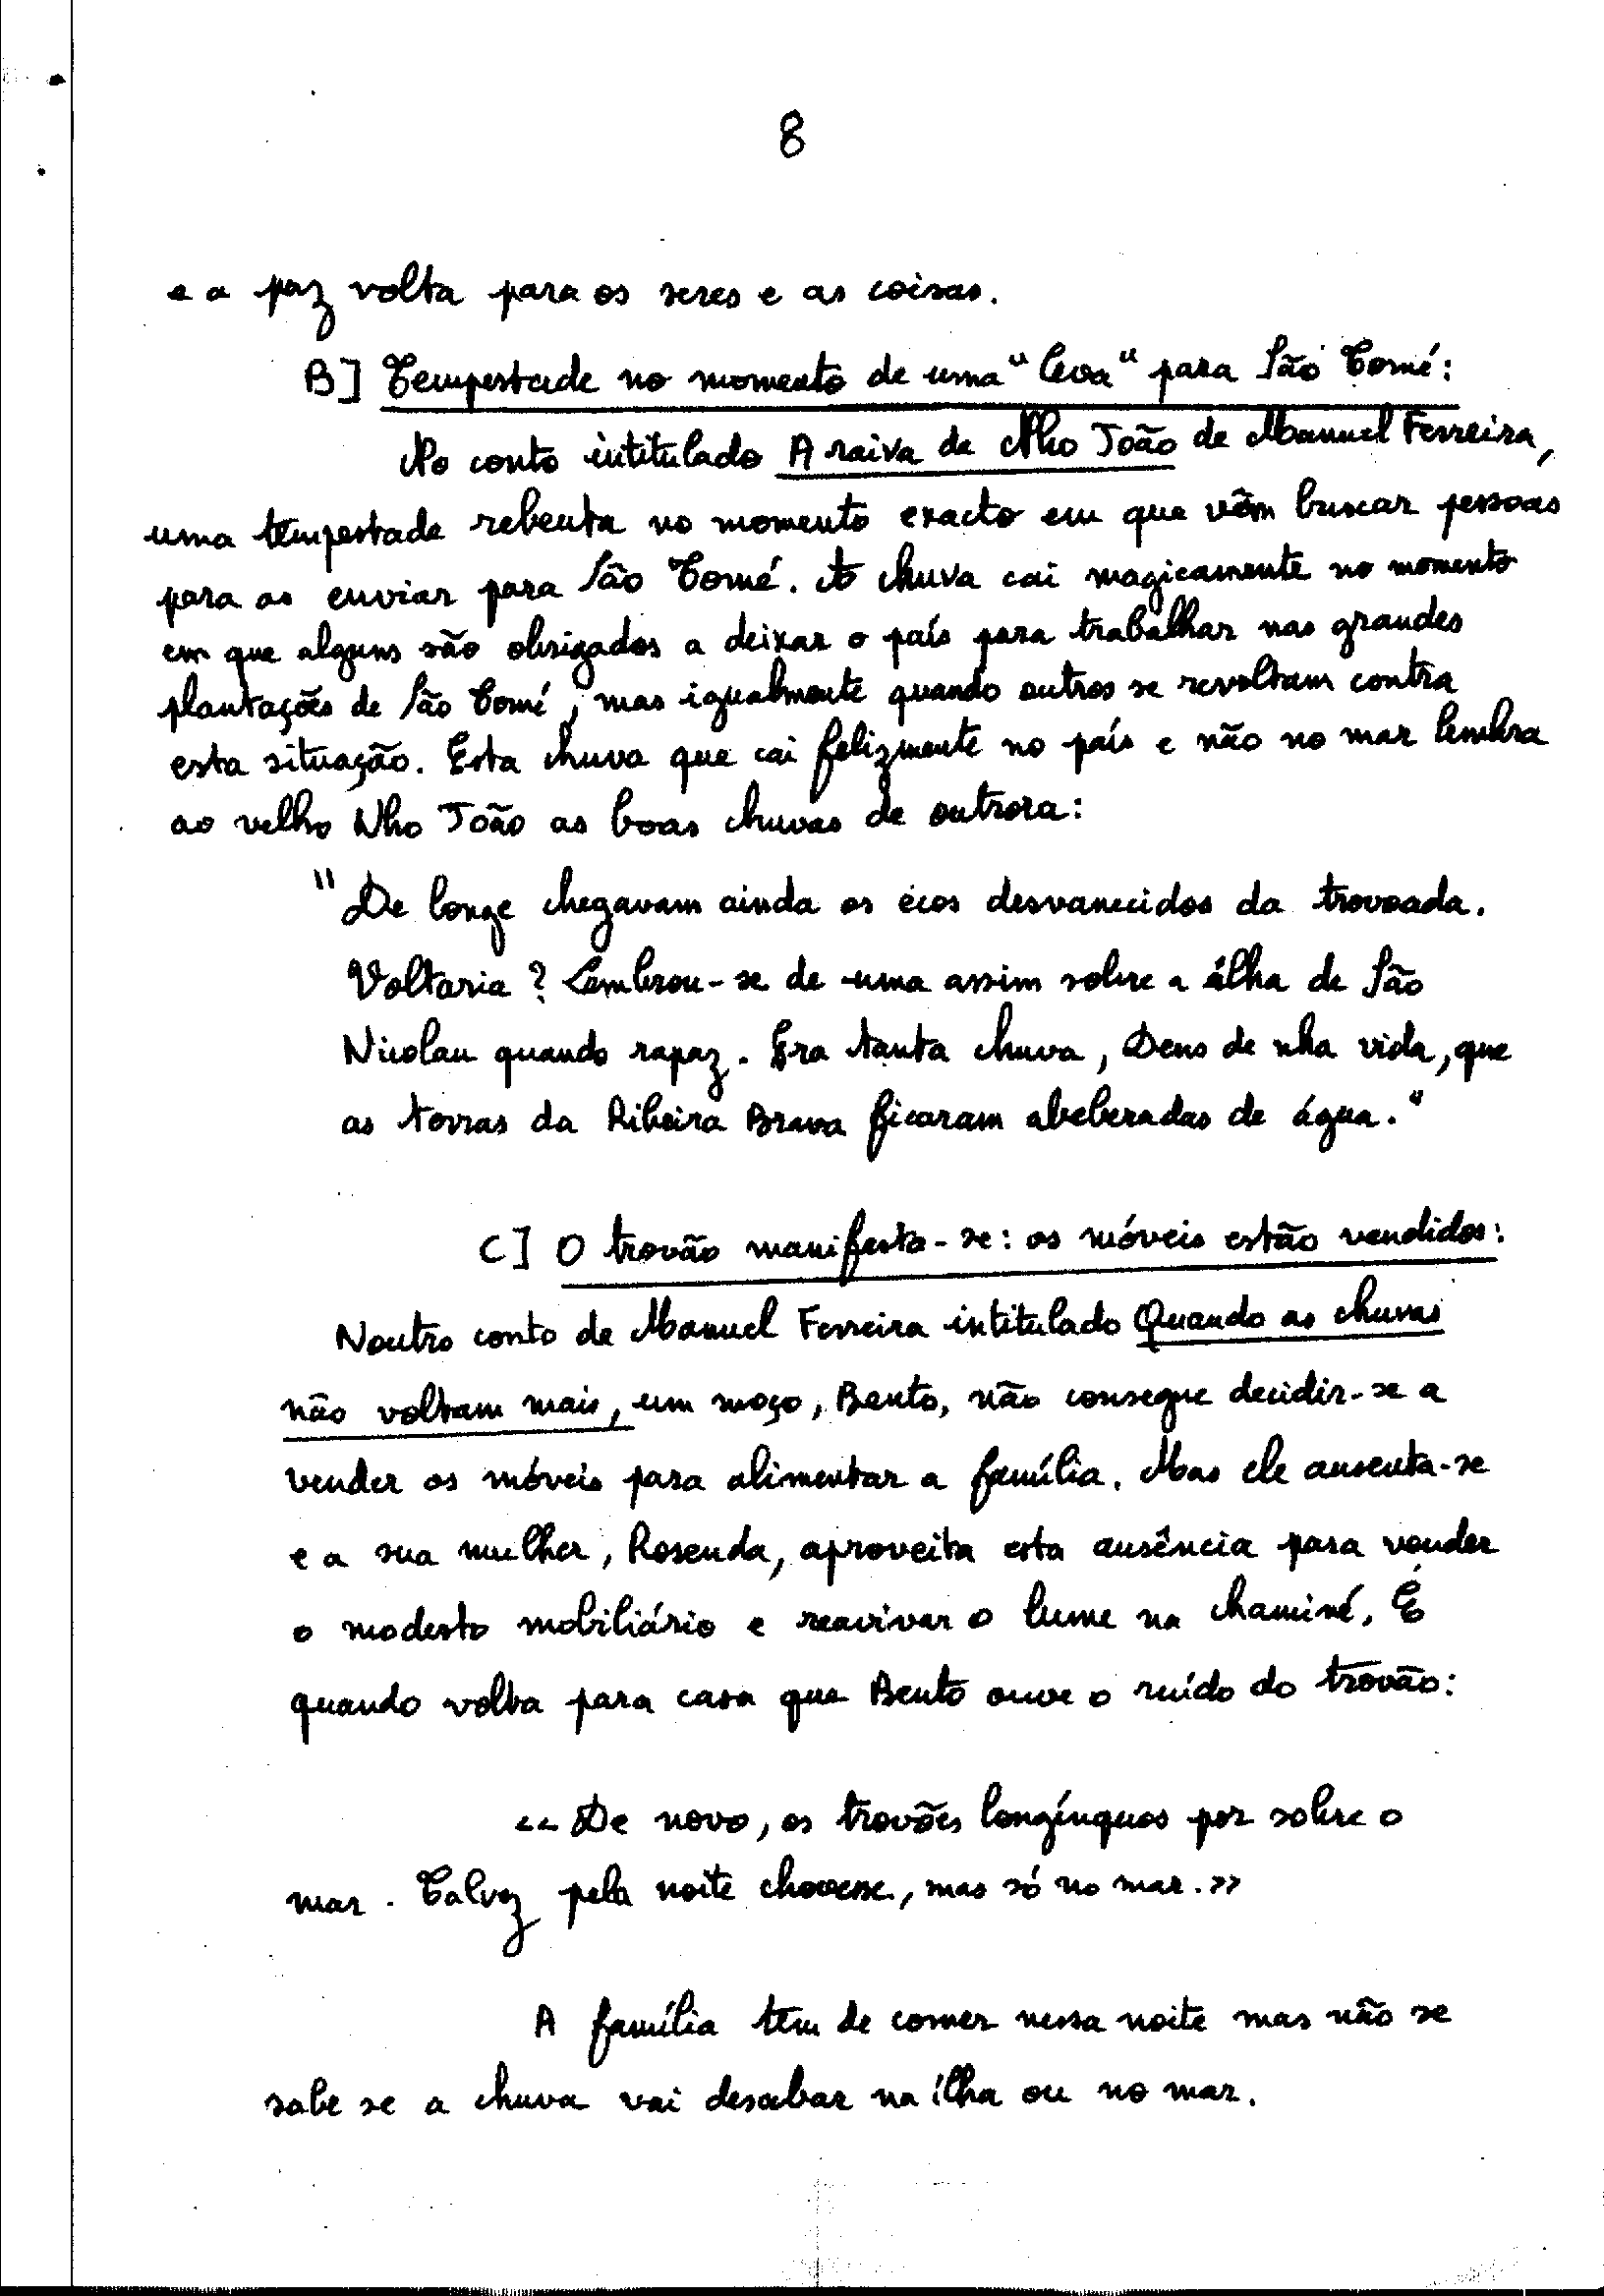 8
e a paz volta para os seres e as coisas.
B] Tempestade no momento de uma "leva" para São Tomé:
No conto intitulado A raiva de Nho João de Manuel Ferreira,
uma tempestade rebenta no momento exacto em que vêm buscar pessoas
para as enviar para São Tomé. A chuva cai magicamente no momento
em que alguns são obrigados a deixar o país para trabalhar nas grandes
plantações de São Tomé, mas igualmente quando outros se revoltam contra
esta situação. Esta chuva que cai felizmente no país e não no mar lembra
ao velho Nho João as boas chuvas de outrora:
"De longe chegavam ainda os écos desvanecidos da trovoada.
Voltaria? Lembrou-se de uma assim sobre a ilha de São
Nicolau quando rapaz. Era tanta chuva, Deus de nha vida, que
as terras da Ribeira Brava ficaram abeberadas de água."
C] O trovão manifesta-se: os móveis estão vendidos:
Noutro conto de Manuel Ferreira intitulado Quando as chuvas
não voltam mais, um moço, Bento, não consegue decidir-se a
vender os móveis para alimentar a família. Mas ele ausenta-se
e a sua mulher, Rosenda, aproveita esta ausência para vender
o modesto mobiliário e reavivar o lume na chaminé. É
quando volta para casa que Bento ouve o ruído do trovão:
<<De novo, os trovões longínquos por sobre o
mar. Talvez pela noite chovesse, mas só no mar.>>
A família tem de comer nessa noite mas não se
sabe se a chuva vai desabar na ilha ou no mar.